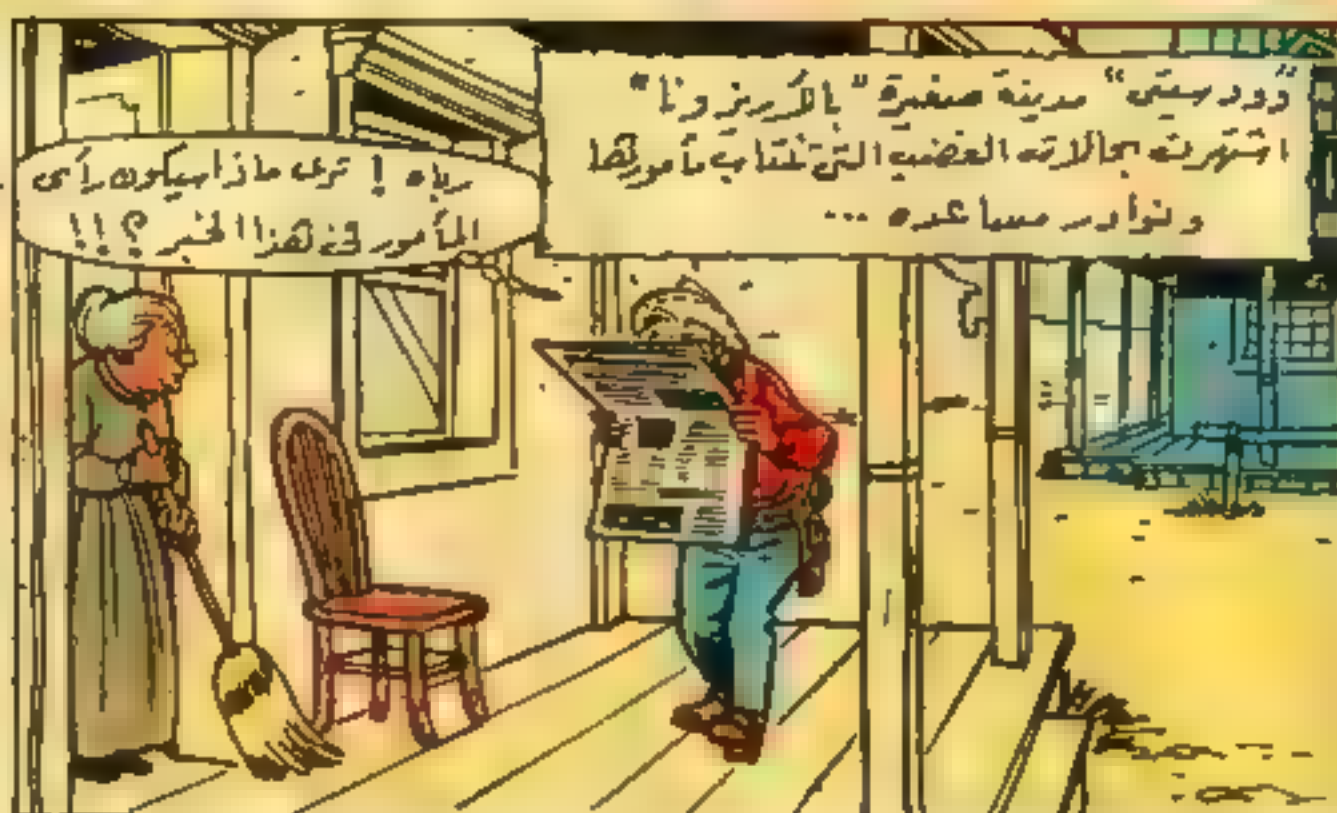 "وودستى" مدينة صغيرة "بالأريزونا"
اشتهرت بحالات الغضب التى تنتاب مأمورها
ونوادر مساعده ...
رباه ! ترى ماذا سيكون رأى
المأمور فى هذا الخبر ؟!!